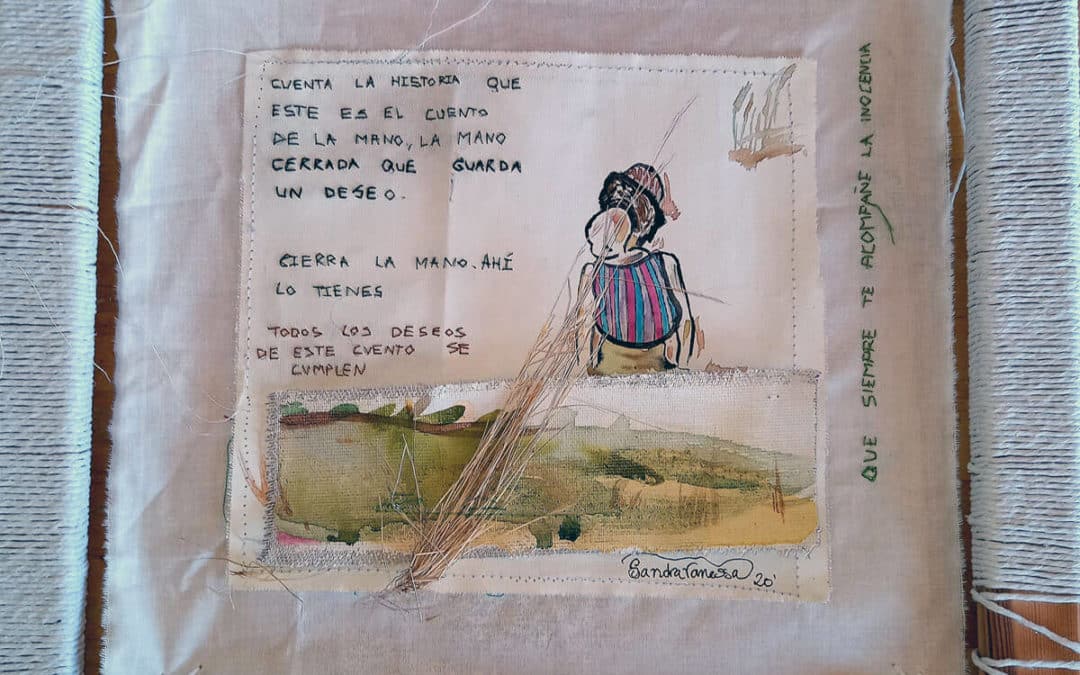 CUENTA LA HISTORIA QUE
ESTE ES EL CUENTO
DE LA MANO, LA MANO
CERRADA QUE GUARDA
UN DESEO.
CIERRA LA MANO. AHÍ
LO TIENES
TODOS LOS DESEOS
DE ESTE CUENTO SE
CUMPLEN
SandraVanessa 20'
QUE SIEMPRE TE ACOMPAÑE LA INOCENCIA